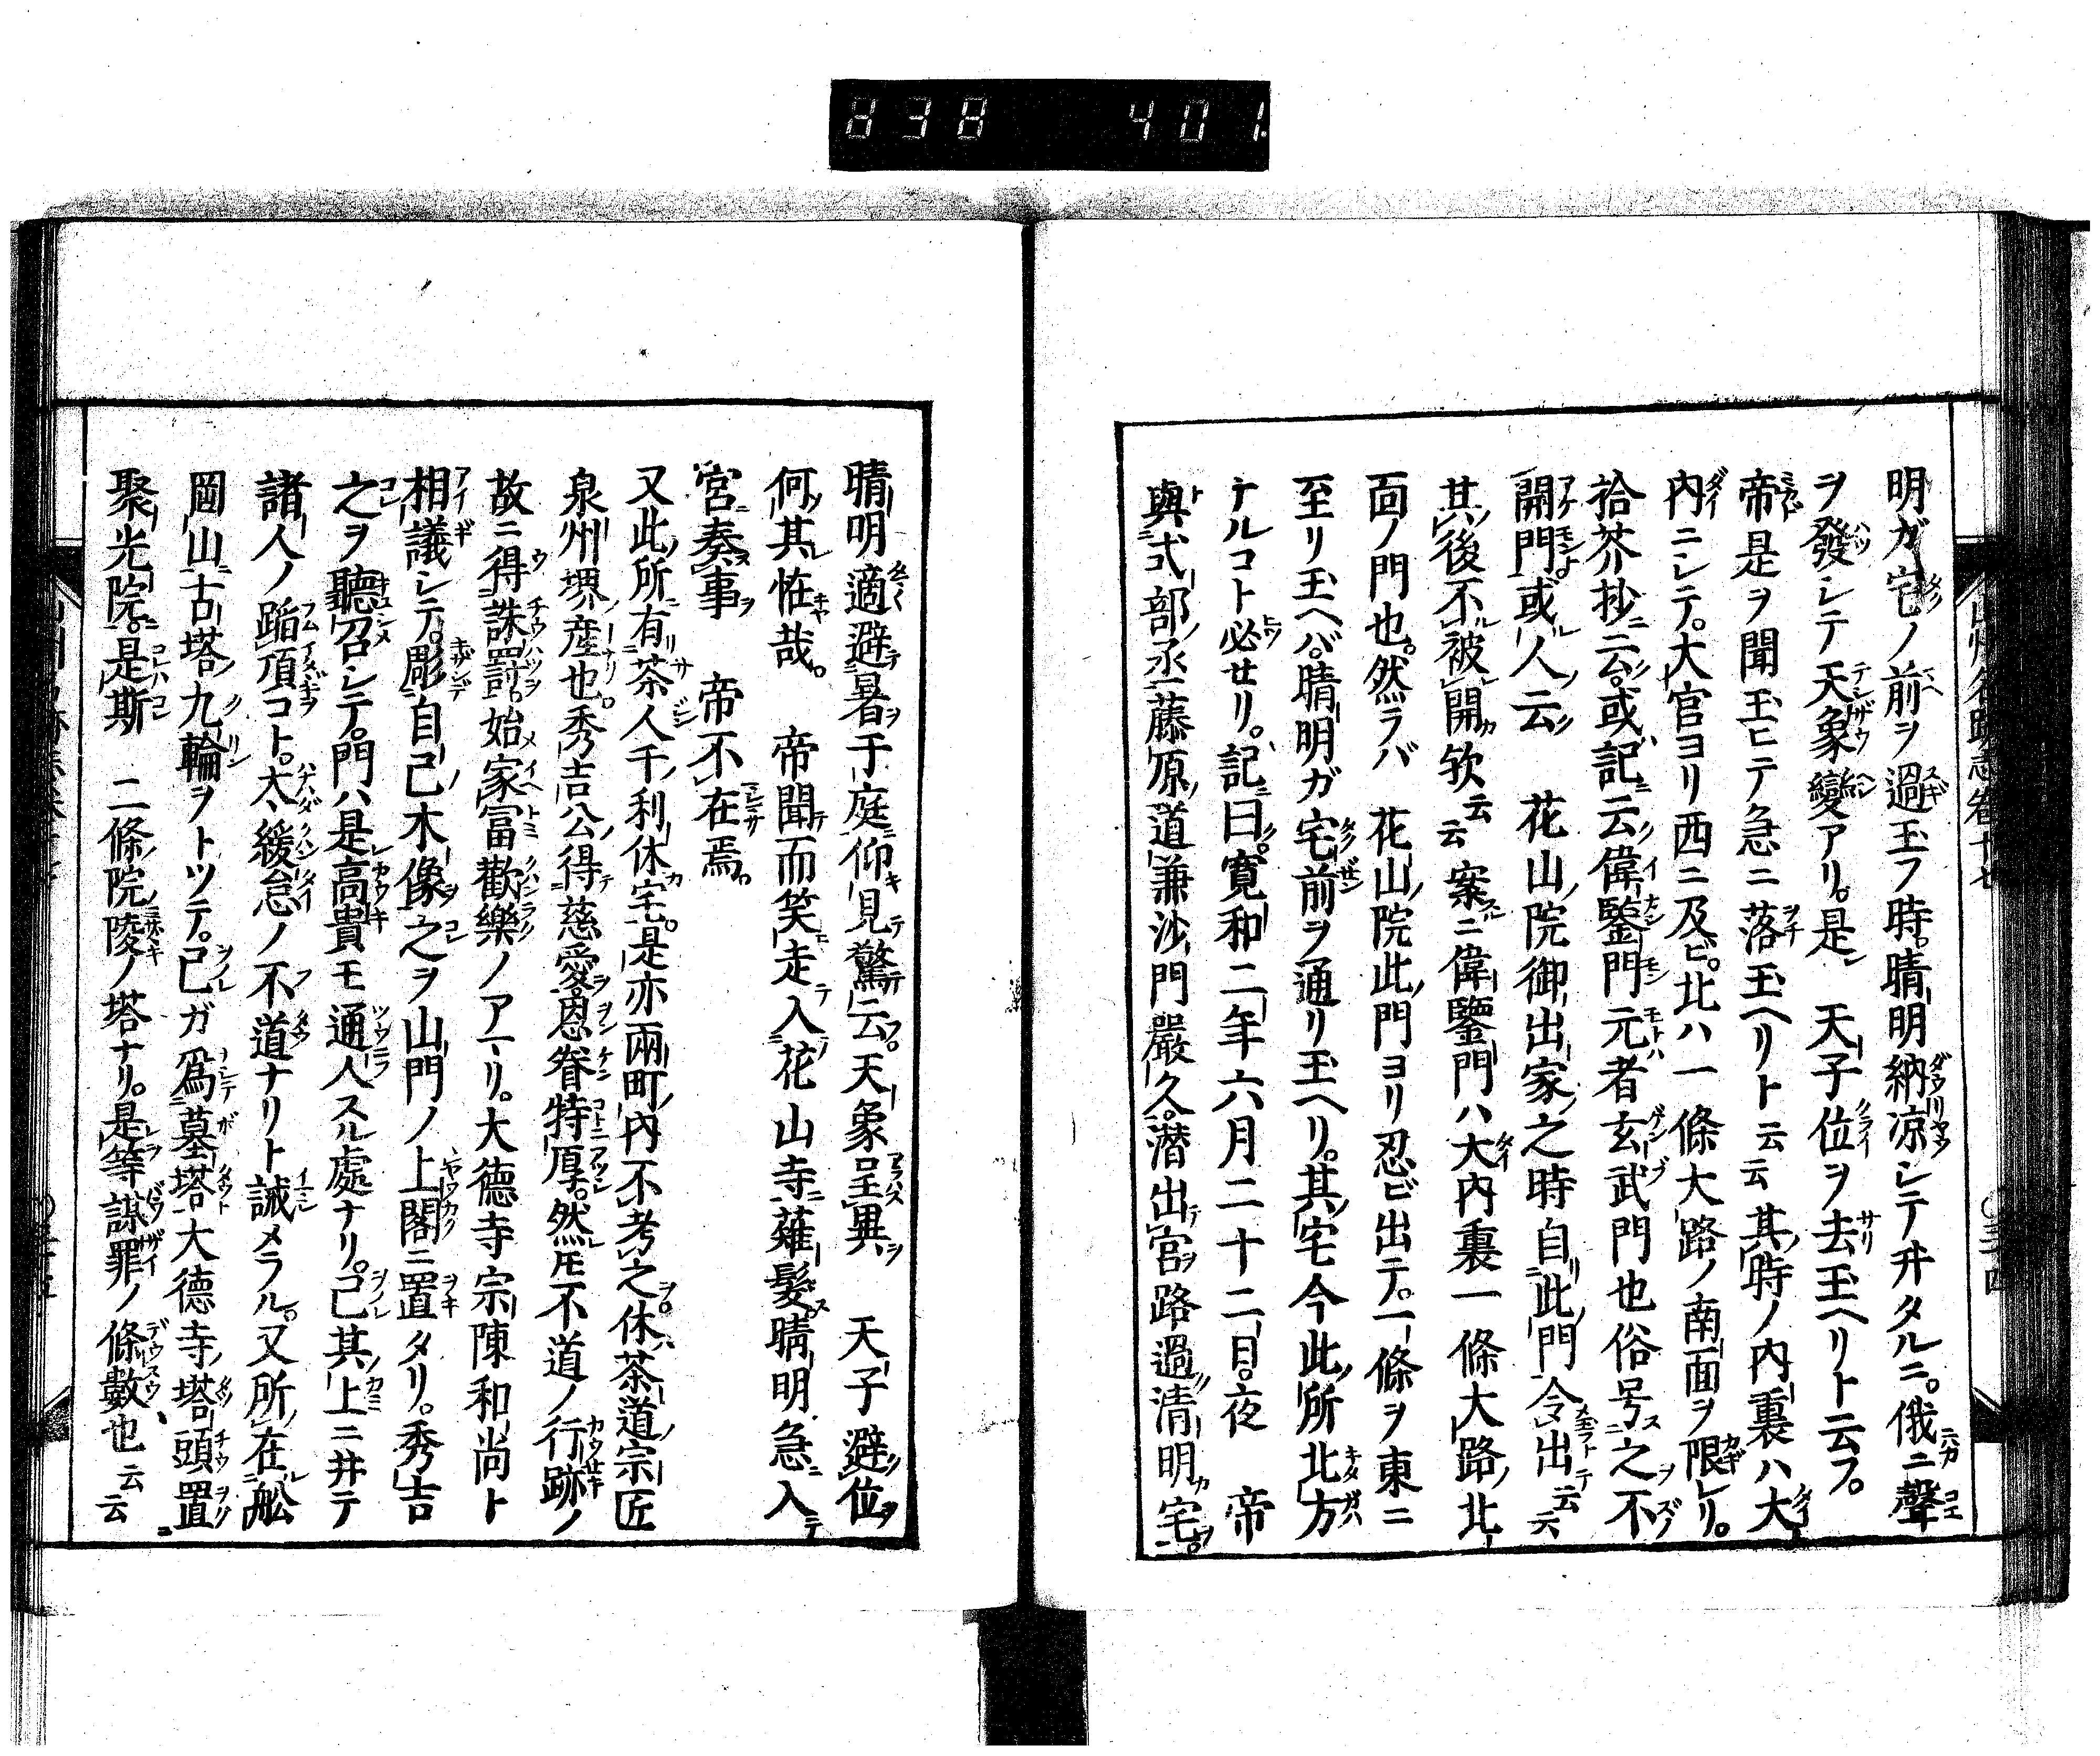 838 401
明ガ宅ノ前ヲ過玉フ時。晴明納凉シテ井タルニ。俄ニ聲
ヲ發シテ天象變アリ。是 天子位ヲ去玉ヘリト云フ。
帝是ヲ聞玉ヒテ急ニ落玉ヘリト云云其時ノ内裏ハ大
内ニシテ。大宮ヨリ西ニ及ビ。北ハ一條大路ノ南面ヲ限レリ。
拾芥抄ニ云。或記云偉鑒門元者玄武門也俗号之不
開門。或人云 花山院御出家之時自此門令出云云
其後不被開欤云云案ニ偉鑒門ハ大内裏一條大路ノ北
面ノ門也。然ラバ 花山院此門ヨリ忍ビ出テ。一條ヲ東ニ
至リ玉ヘバ。晴明ガ宅前ヲ通リ玉ヘリ。其宅今此所北方
ナルコト必セリ。記曰。寛和二年六月二十二日。夜 帝
與式部丞藤原道兼沙門嚴久。潜出宮路過清明宅。
晴明適避暑于庭仰見驚云。天象呈異 天子避位
何其恠哉。 帝聞而笑走入花山寺薙髮晴明急入
宮奏事 帝不在焉。
又此所有茶人千利休宅。是亦兩町内不考之休茶道宗匠
泉州堺産也。秀吉公得慈愛恩眷特厚。然𪜈不道ノ行跡ノ
故ニ得誅罸。始家冨歡樂ノアマリ。大德寺宗陳和尚ト
相議シテ。彫自己木像之ヲ山門ノ上閣ニ置タリ。秀吉
之ヲ聽召シテ。門ハ是高貴モ通人スル處ナリ。己其上ニ井テ
諸人ノ蹈頂コト。太緩怠ノ不道ナリト誡メラル。又所在舩
岡山古塔九輪ヲトツテ。己ガ爲墓塔大德寺塔頭置
聚光院。是斯 二條院陵ノ塔ナリ。是等謀罪ノ條數也云云